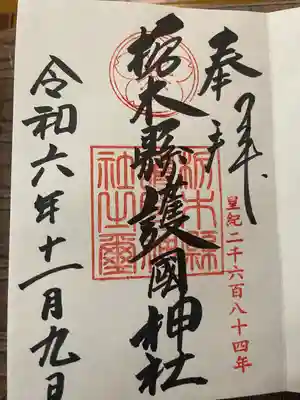 奉拝
皇紀二千六百八十四年
栃木縣護國神社
栃木縣護國神社之璽
令和六年十一月九日